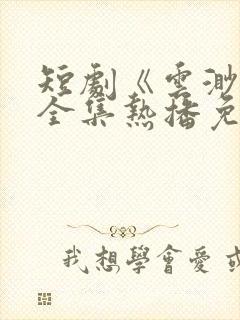 短劇《雲渺
全集熱播免
我想學會愛或